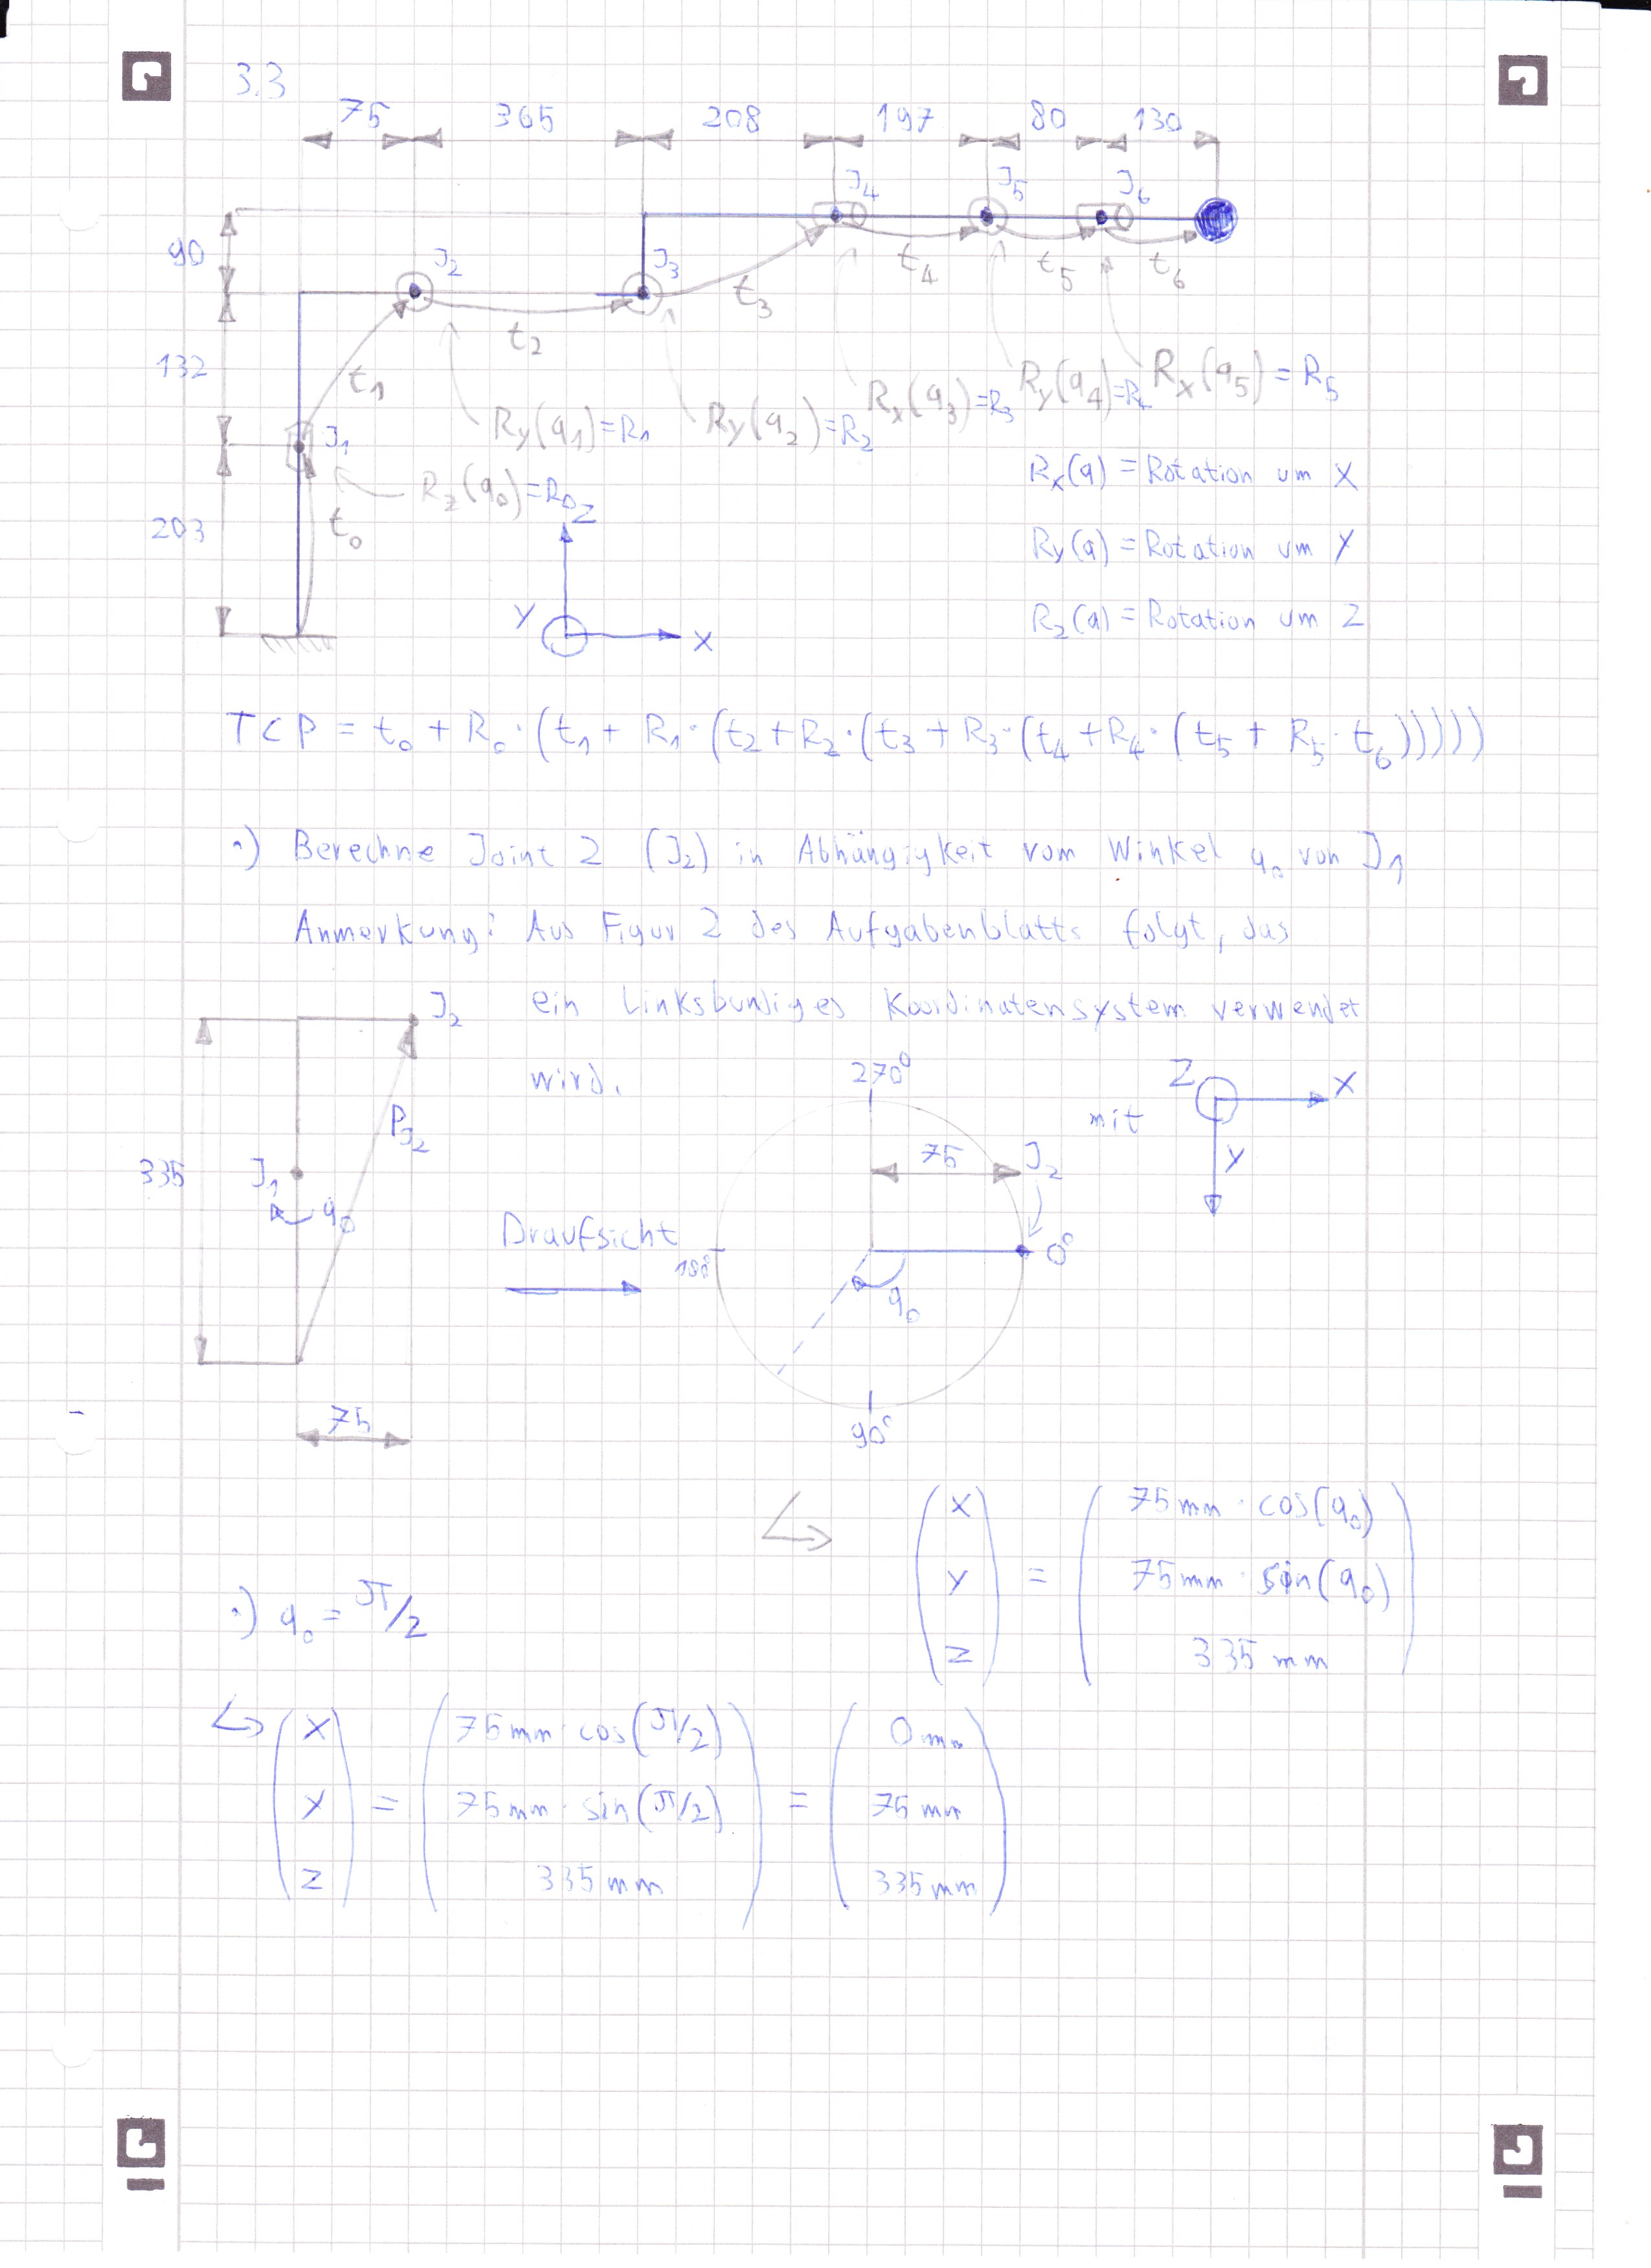 3.3
75 365 208 197 80 130
J4 J5 J6
90 J2 J3
t4 t5 t6
t3
t2
132 t1
Rx(q3)=R3 Ry(q4)=R4 Rx(q5)=R5
Ry(q1)=R1 Ry(q2)=R2
J1
Rz(q0)=R0
Rx(q) = Rotation um X
203 t0 Z
Ry(q) = Rotation um Y
Rz(q) = Rotation um Z
Y X
TCP = t0 + R0·(t1 + R1·(t2 + R2·(t3 + R3·(t4 + R4·(t5 + R5·t6))))))
·) Berechne Joint 2 (J2) in Abhängigkeit vom Winkel q0 von J1
Anmerkung: Aus Figur 2 des Aufgabenblatts folgt, das
J2 ein Linksbündiges Koordinatensystem verwendet
wird.
270° Z X
mit
PJ2
75 J2 Y
335 J1
q0
Draufsicht 180° 0°
q0
75 90°
(X Y Z) = (75mm · cos(q0) 75mm · sin(q0) 335 mm)
·) q0 = π/2
(X Y Z) = (75mm · cos(π/2) 75mm · sin(π/2) 335 mm) = (0mm 75 mm 335 mm)